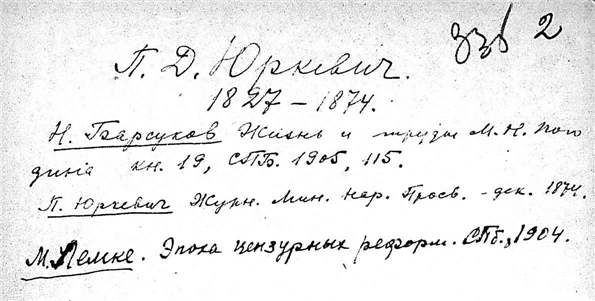 331 2
П. Д. Юркевич.
1827 – 1874.
Н. Барсуков Жизнь и труды М. Н. Пого
дина кн. 19, СПБ. 1905, 115.
П. Юркевич Журн. Мин. Нар. Просв. - дек. 1874.
М. Лемке. Эпоха цензурных реформ. СПб., 1904.